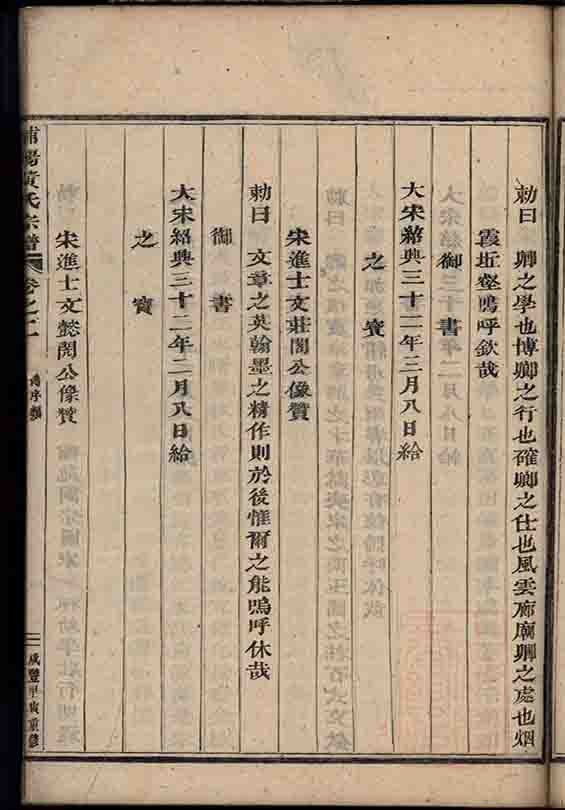 勅曰　卿之學也博卿之行也確卿之仕也風雲廊廟卿之處也烟
霞坵壑嗚呼欽哉
御書
大宋紹興三十二年三月八日給
之寶
宋進士文莊閣公像贊
勅曰　文章之英翰墨之精作則於後惟爾之能嗚呼休哉
御書
大宋紹興三十二年二月八日給
之寶
宋進士文懿閣公像贊
浦陽黃氏宗譜　卷之二　像序類　三　咸豐甲寅重修